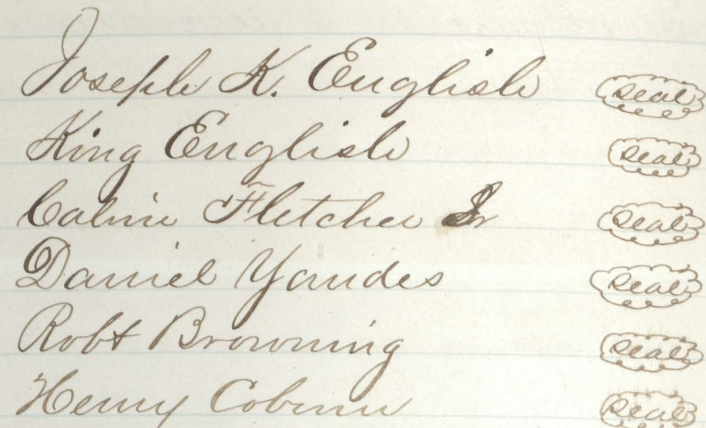 Joseph K. English seal
King English seal
Calvin Fletcher Sr seal
Daniel Yandes seal
Robt Browning seal
Henry Coburn seal